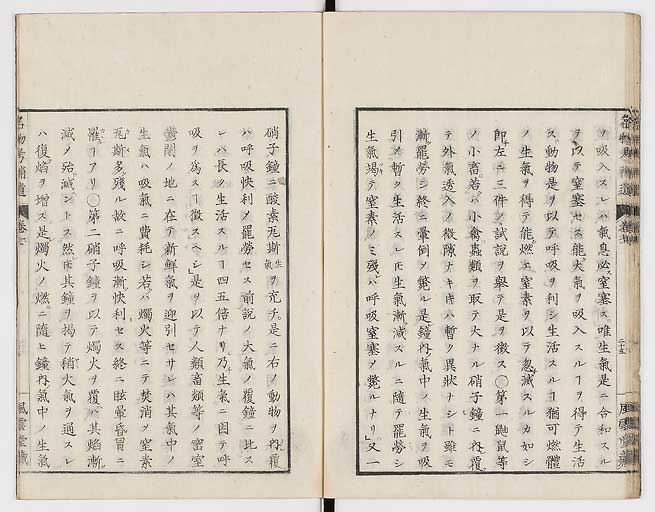 ヲ吸入スレハ氣息必窒塞ス唯生氣是ニ合和スル
ヲ以テ窒塞セス能大氣ヲ吸入スルヿヲ得テ生活
ス動物是ヲ以テ呼吸ヲ利シ生活スルヿ猶可燃體
ノ生氣ヲ得テ能燃エ窒素ヲ以テ忽滅スルカ如シ
即左ニ三件ノ試説ヲ擧テ是ヲ徴ス○第一鼬鼠等
ノ小畜若ハ小禽蟲類ヲ取テ大ナル硝子鐘ニ內覆
テ外氣透入ノ微隙ナキキハ暫ク異狀ナシト雖モ
漸罷勞シ終ニ暈倒ノ斃ル是鐘內氣中ノ生氣ヲ吸
引ノ暫ク生活スレ𪜈生氣漸減スルニ隨テ罷勞シ
生氣竭テ窒素ノミ殘ハ呼吸窒塞ノ斃ルナリ」又一
硝子鐘ニ酸素瓦斯生氣ヲ充テ是ニ右ノ動物ヲ內覆
ハ呼吸快利ノ罷勞セス前說ノ大氣ノ覆鐘ニ比ス
レハ長ク生活スルヿ四五倍ナリ乃生氣ニ因テ呼
吸ヲ爲スヿ徴スヘシ」是ヲ以テ人類畜類等ノ密室
鬱閉ノ地ニ在テ新鮮氣ヲ迎引セサレハ其氣中ノ
生氣ハ吸氣ニ費耗シ若ハ燭火等ニテ焚消ノ窒素
瓦斯多殘ル故ニ呼吸漸快利セス終ニ眩暈昏冒ニ
罹ヿアリ○第二硝子鐘ヲ以テ燭火ヲ覆ハ其焰漸
減メ殆滅ントス然𪜈其鐘ヲ揭テ稍大氣ヲ通スレ
ハ復焰ヲ增ス是燭火ノ燃ニ隨ヒ鐘內氣中ノ生氣
名物考補遺
卷七
風雲堂藏